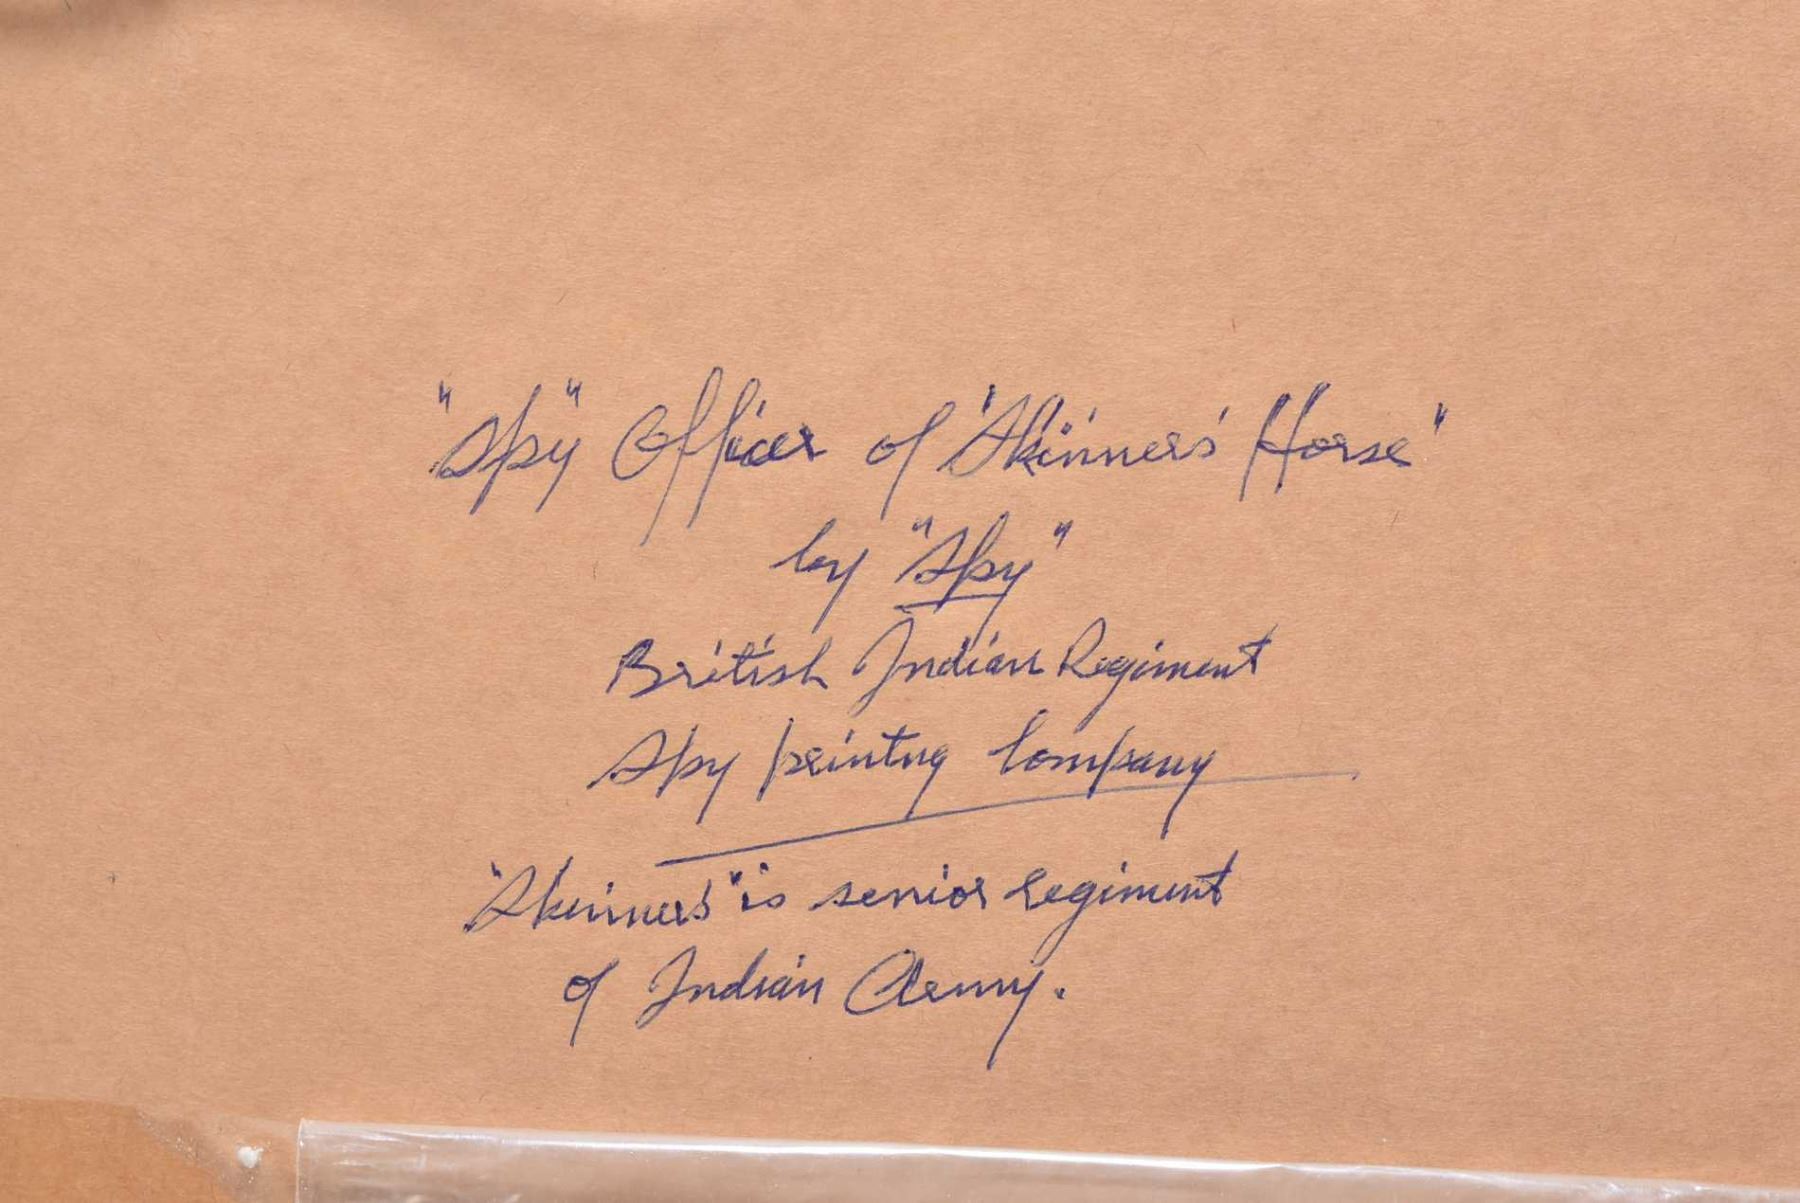 "Spy" Officer of "Skinner's Horse"
by "Spy"
British Indian Regiment
Spy printng Company
"Skinners" is senior regiment
of Indian Army.